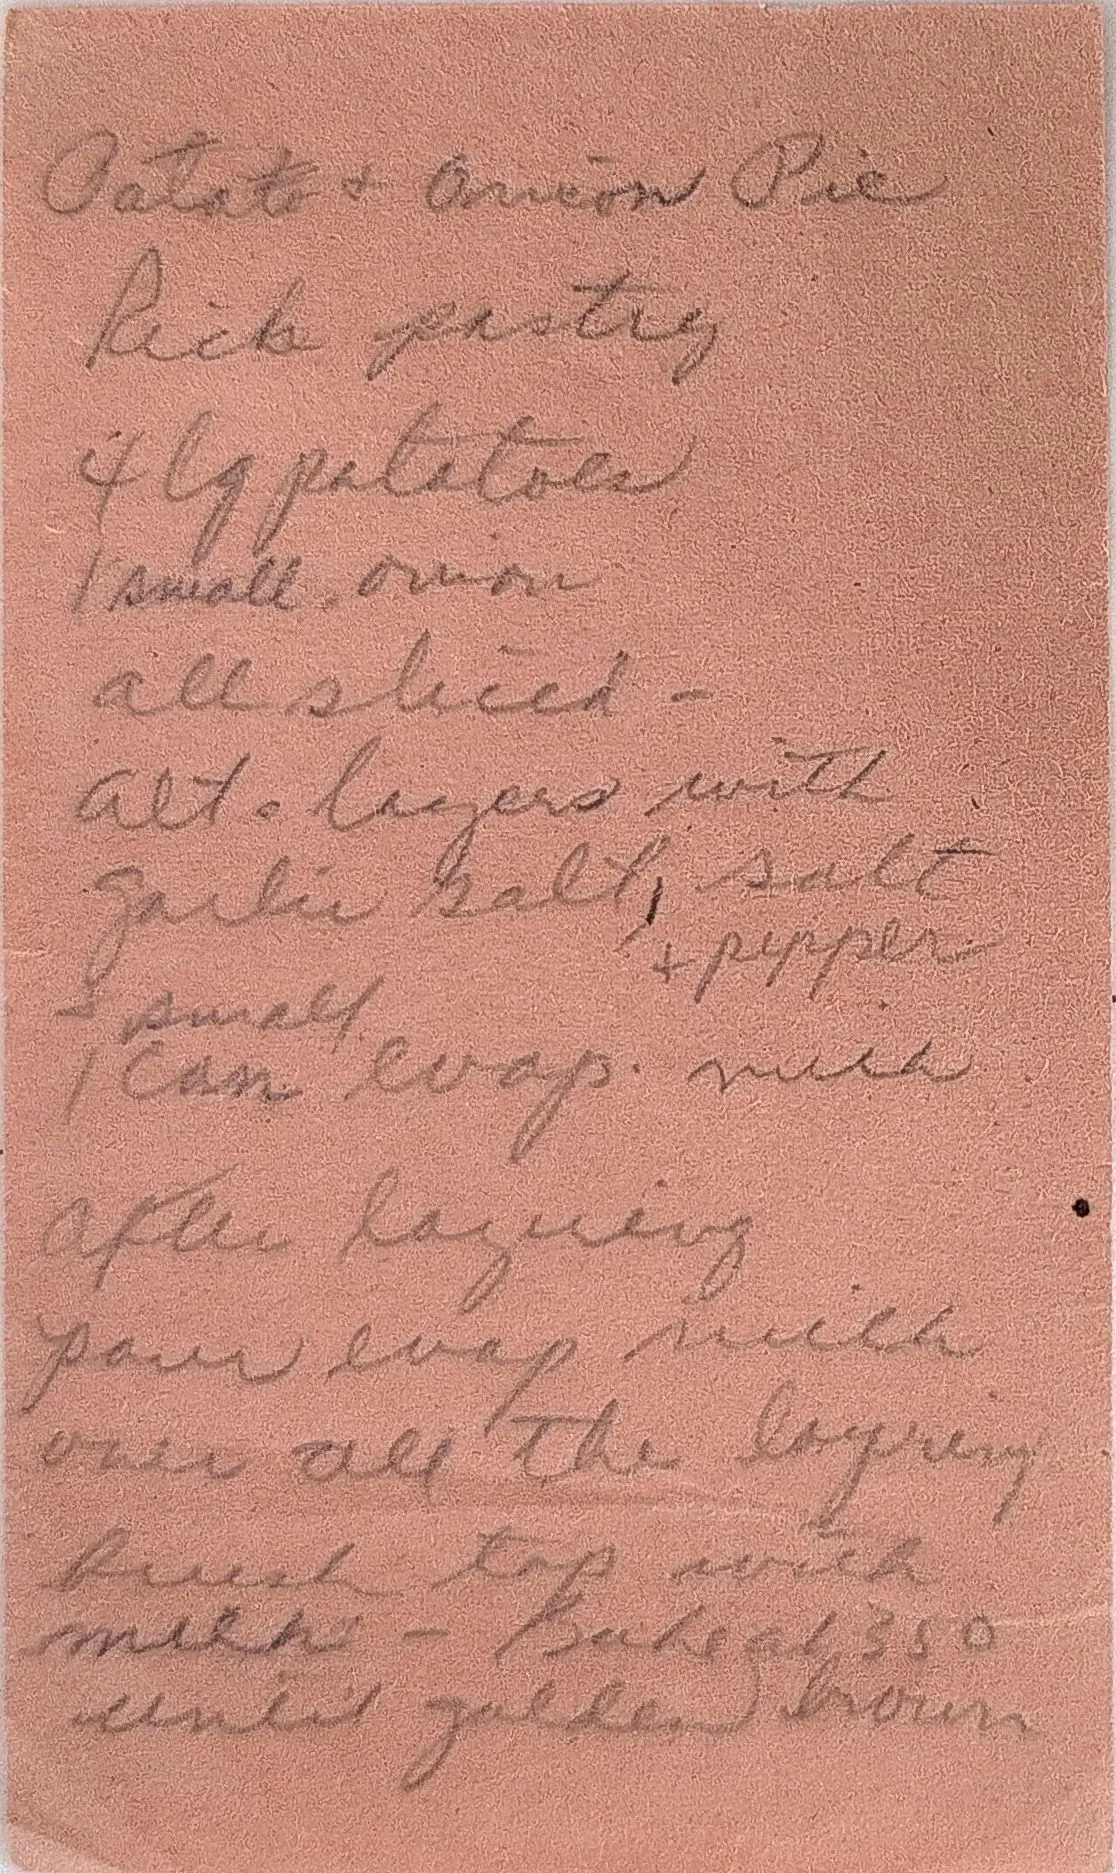 Potato + Onion Pie
Rich pastry
4 lg potatoes
1 small onion
all sliced -
alt. layers with
garlic salt, salt
+ pepper
- small
1 can evap. milk
after layering
pour evap milk
over all the layering
brush top with
milk - bake at 350
until golden brown